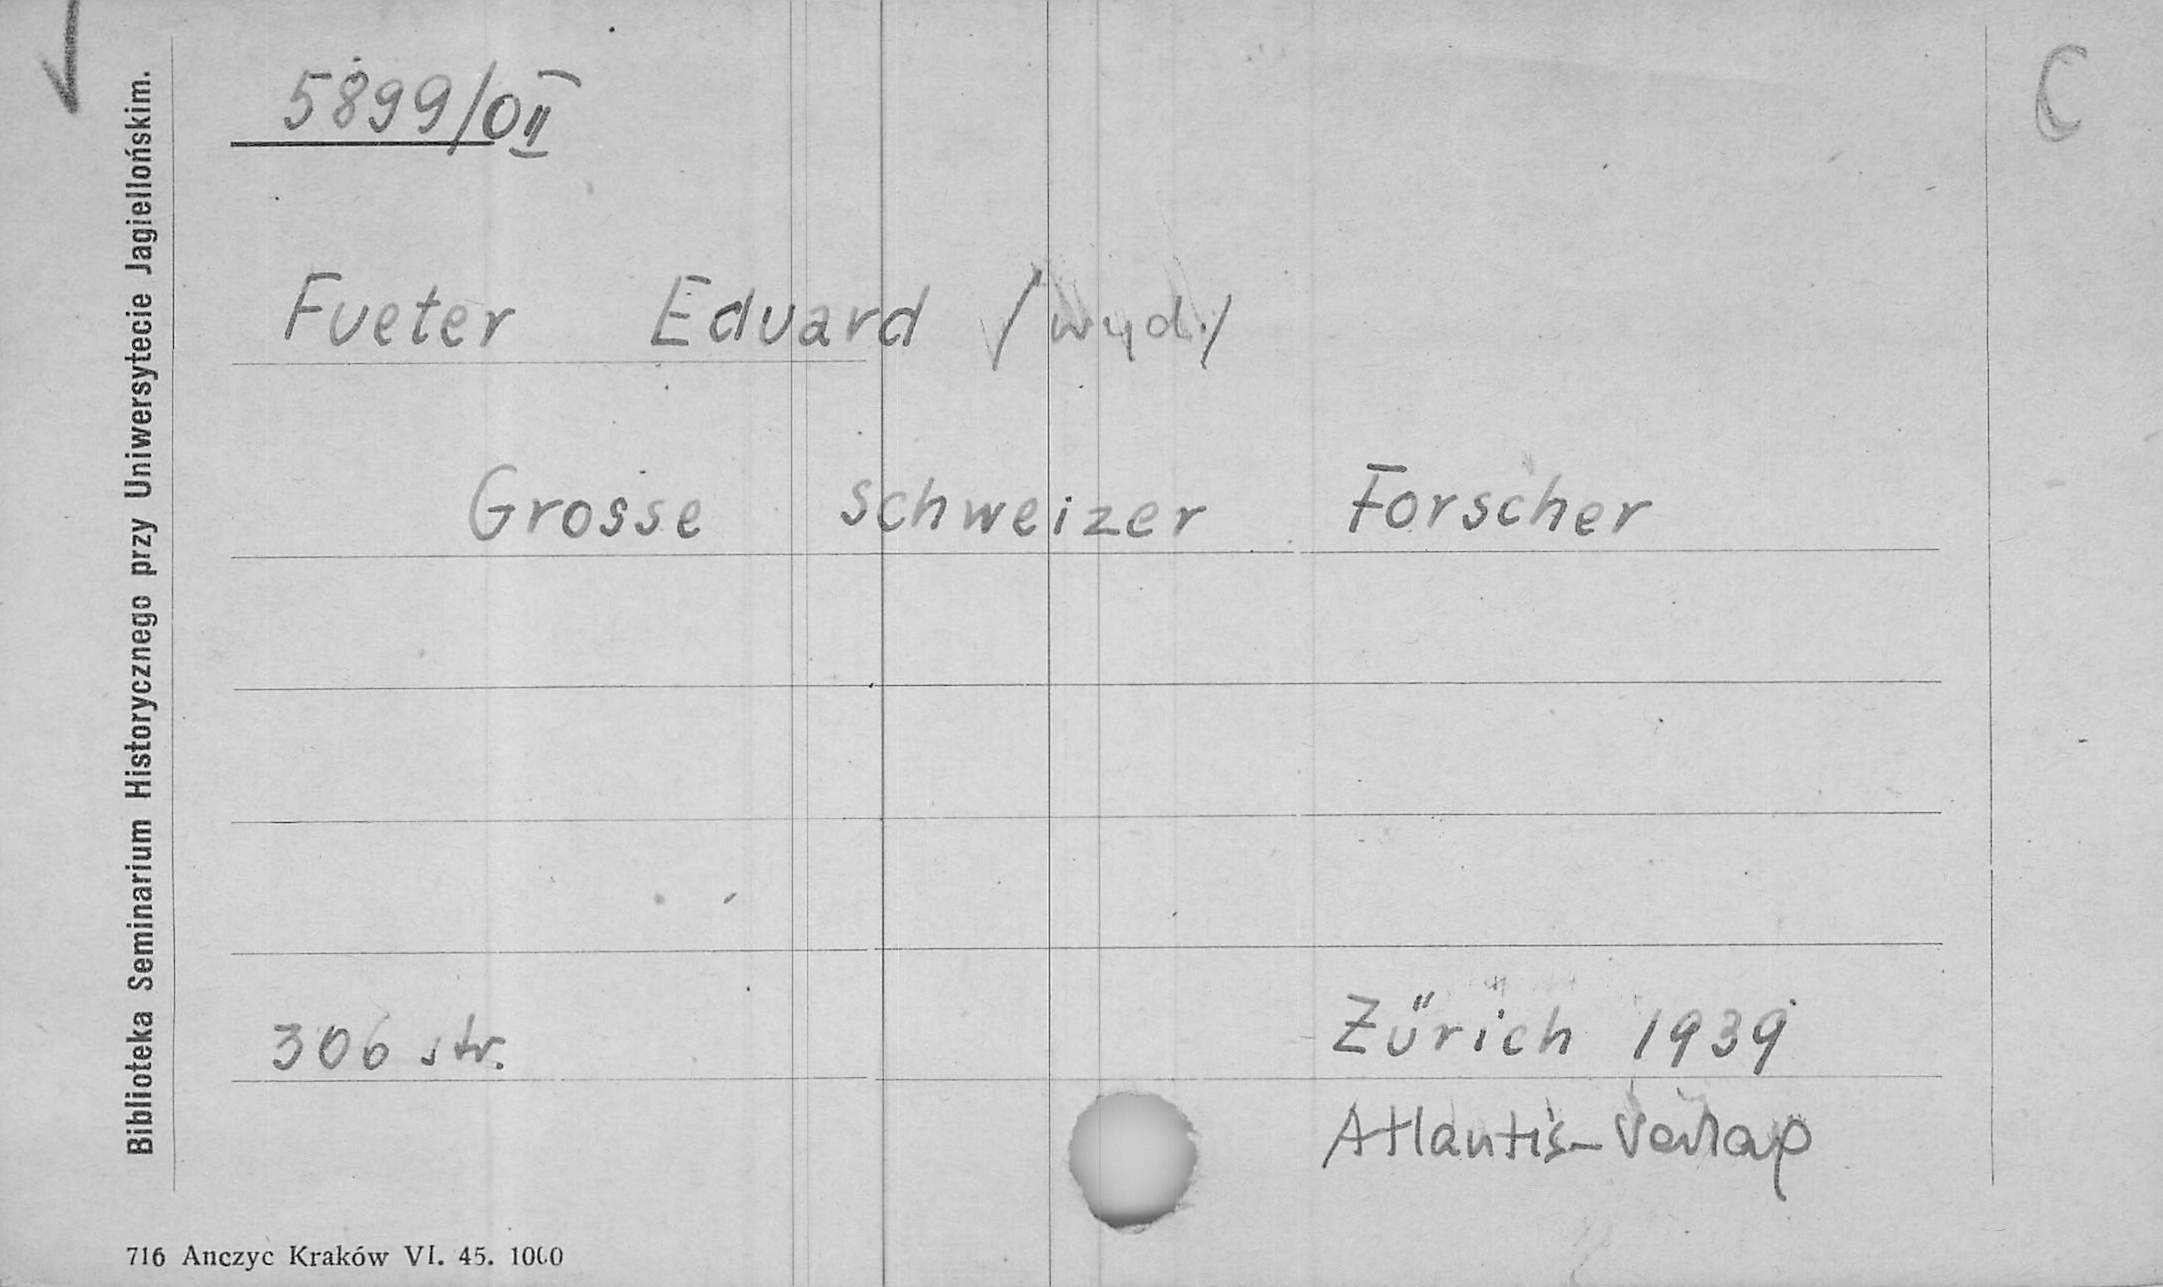 5899/OII
C
Fueter Eduard /wyd./
Grosse schweizer Forscher
306 str.
Zürich 1939
Atlantis-Verlag
Biblioteka Seminarium Historycznego przy Uniwersytecie Jagiellońskim.
716 Anczyc Kraków VI. 45. 1000